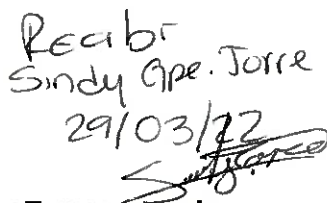 Recibi
Sindy Gpe. Torre
29/03/22